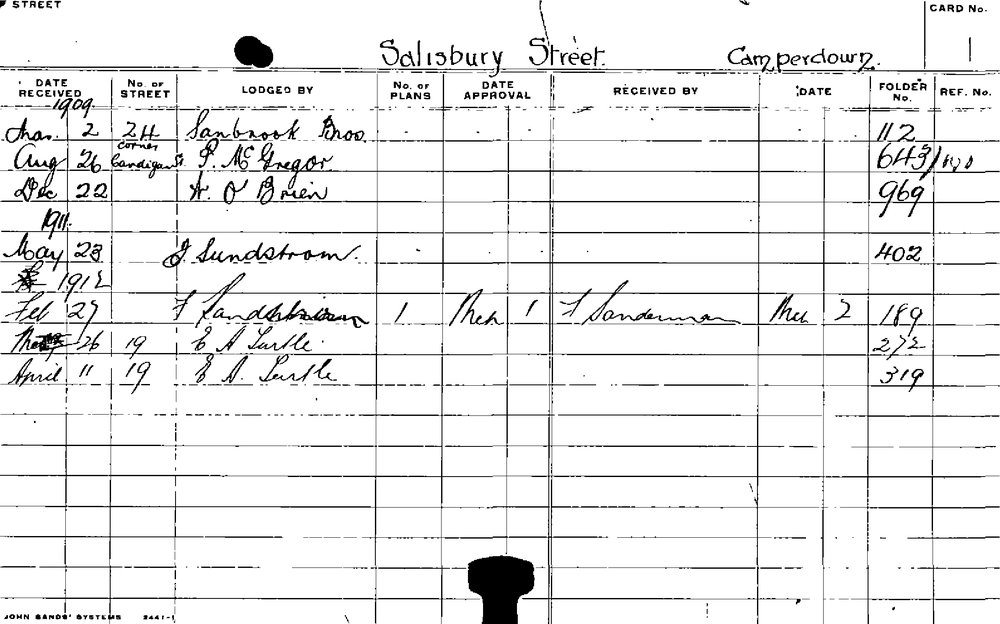 STREET
CARD No.
1
Salisbury Street. Camperdown.
DATE RECEIVED No. OF STREET LODGED BY No. OF PLANS DATE APPROVAL RECEIVED BY DATE FOLDER No. REF. No.
1909
2 24 Sanbrook Bros. 112
Aug 26 corner Candigan St P. McGregor 643/
Dec 22 W. O'Brien 969
1911.
May 23 J Sundstrom. 402
1912
Feb 27 F 1 Mch 1 F Sanderman Mch 2 189
26 19 E A Turtle. 272
April 11 19 E A. Turtle 319
JOHN SANDS' SYSTEMS 2441-1